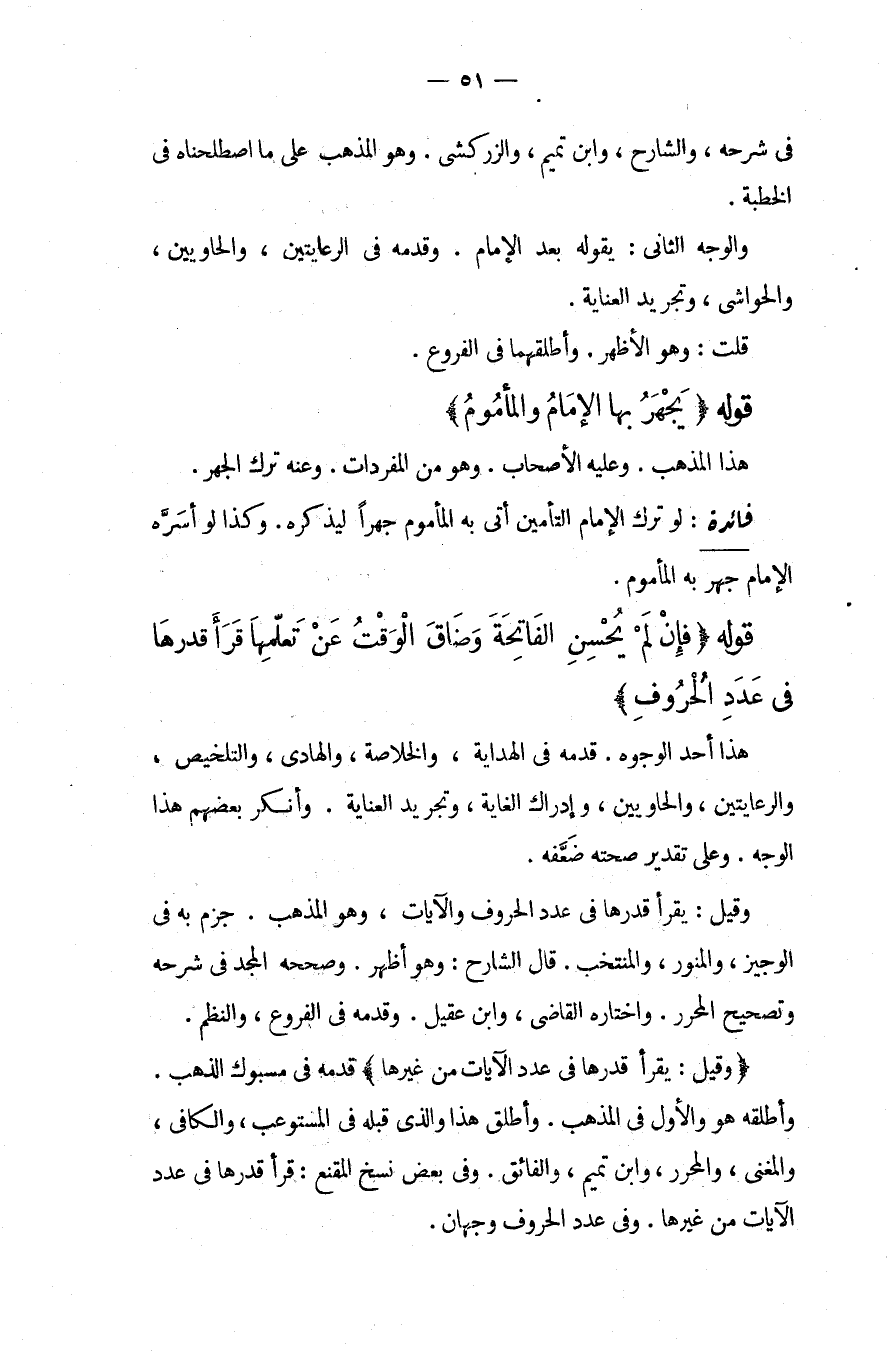 — ٥١ —
فى شرحه ، والشارح ، وابن تميم ، والزركشى . وهو المذهب على ما اصطلحناه فى
الخطبة .
والوجه الثانى : يقوله بعد الإمام . وقدمه فى الرعايتين ، والحاويين ،
والحواشى ، وتجريد العناية .
قلت : وهو الأظهر . وأطلقهما فى الفروع .
قوله ﴿ يَجْهَرُ بها الإمَامُ والمأمُومُ ﴾
هذا المذهب . وعليه الأصحاب . وهو من المفردات . وعنه ترك الجهر .
فائدة : لو ترك الإمام التأمين أتى به المأموم جهراً ليذكره . وكذا لو أسَرَّه
الإمام جهر به المأموم .
قوله ﴿ فإِنْ لَمْ يُحْسِنِ الفَاتِحَةَ وَضَاقَ الْوَقْتُ عَنْ تَعلّمِهاَ قَرَأَ قدرهَا
فى عَدَدِ الْحُرُوفِ ﴾
هذا أحد الوجوه . قدمه فى الهداية ، والخلاصة ، والهادى ، والتلخيص ،
والرعايتين ، والحاويين ، وإدراك الغاية ، وتجريد العناية . وأنكر بعضهم هذا
الوجه . وعلى تقدير صحته ضَعَّفه .
وقيل : يقرأ قدرها فى عدد الحروف والآيات ، وهو المذهب . جزم به فى
الوجيز ، والمنور ، والمنتخب . قال الشارح : وهو أظهر . وصححه المجد فى شرحه
وتصحيح المحرر . واختاره القاضى ، وابن عقيل . وقدمه فى الفروع ، والنظم .
﴿ وقيل : يقرأ قدرها فى عدد الآيات من غيرها ﴾ قدمه فى مسبوك الذهب .
وأطلقه هو والأول فى المذهب . وأطلق هذا والذى قبله فى المستوعب ، والكافى ،
والمغنى ، والمحرر ، وابن تميم ، والفائق . وفى بعض نسخ المقنع : قرأ قدرها فى عدد
الآيات من غيرها . وفى عدد الحروف وجهان .